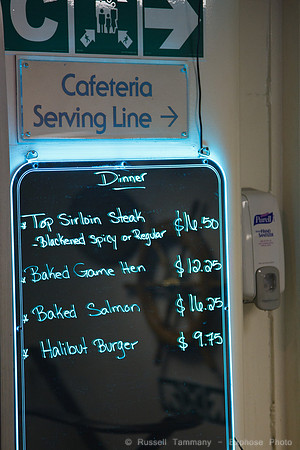 C
Cafeteria
Serving Line →
Dinner
* Top Sirloin Steak $16.50
- Blackened Spicy or Regular
* Baked Game Hen $12.25
* Baked Salmon $16.25
* Halibut Burger $9.75
Purell
© Russell Tammany - Exphose Photo